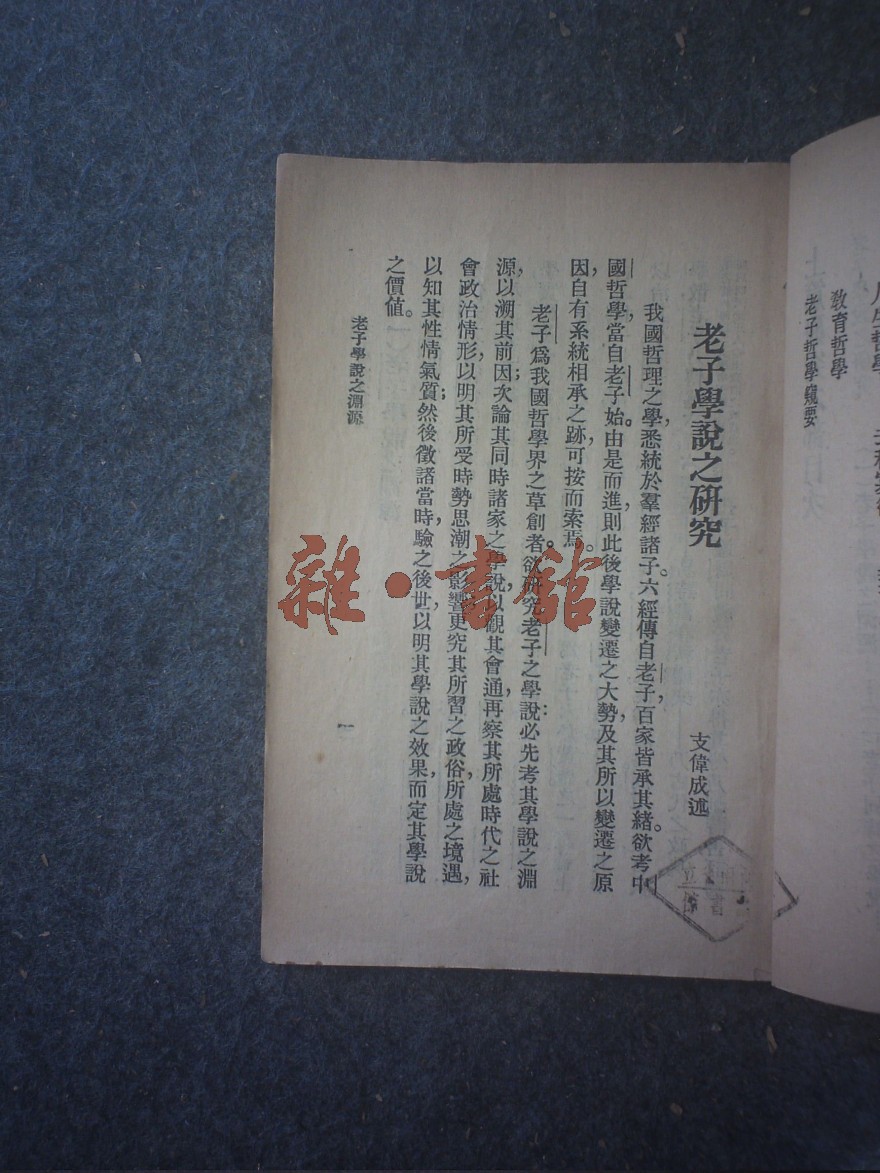 教育哲學
老子哲學窺要
老子學說之研究
支偉成述
我國哲理之學，悉統於羣經諸子。六經傳自老子，百家皆承其緒。欲考中
國哲學，當自老子始。由是而進，則此後學說變遷之大勢，及其所以變遷之原
因，自有系統相承之跡，可按而索焉。
老子爲我國哲學界之草創者。欲研究老子之學說，必先考其學說之淵
源，以溯其前因；次論其同時諸家之學說，以觀其會通；再察其所處時代之社
會政治情形，以明其所受時勢思潮之影響；更究其所習之政俗，所處之境遇，
以知其性情氣質；然後徵諸當時，驗之後世，以明其學說之效果，而定其學說
之價值。
老子學說之淵源
一
雜·書館